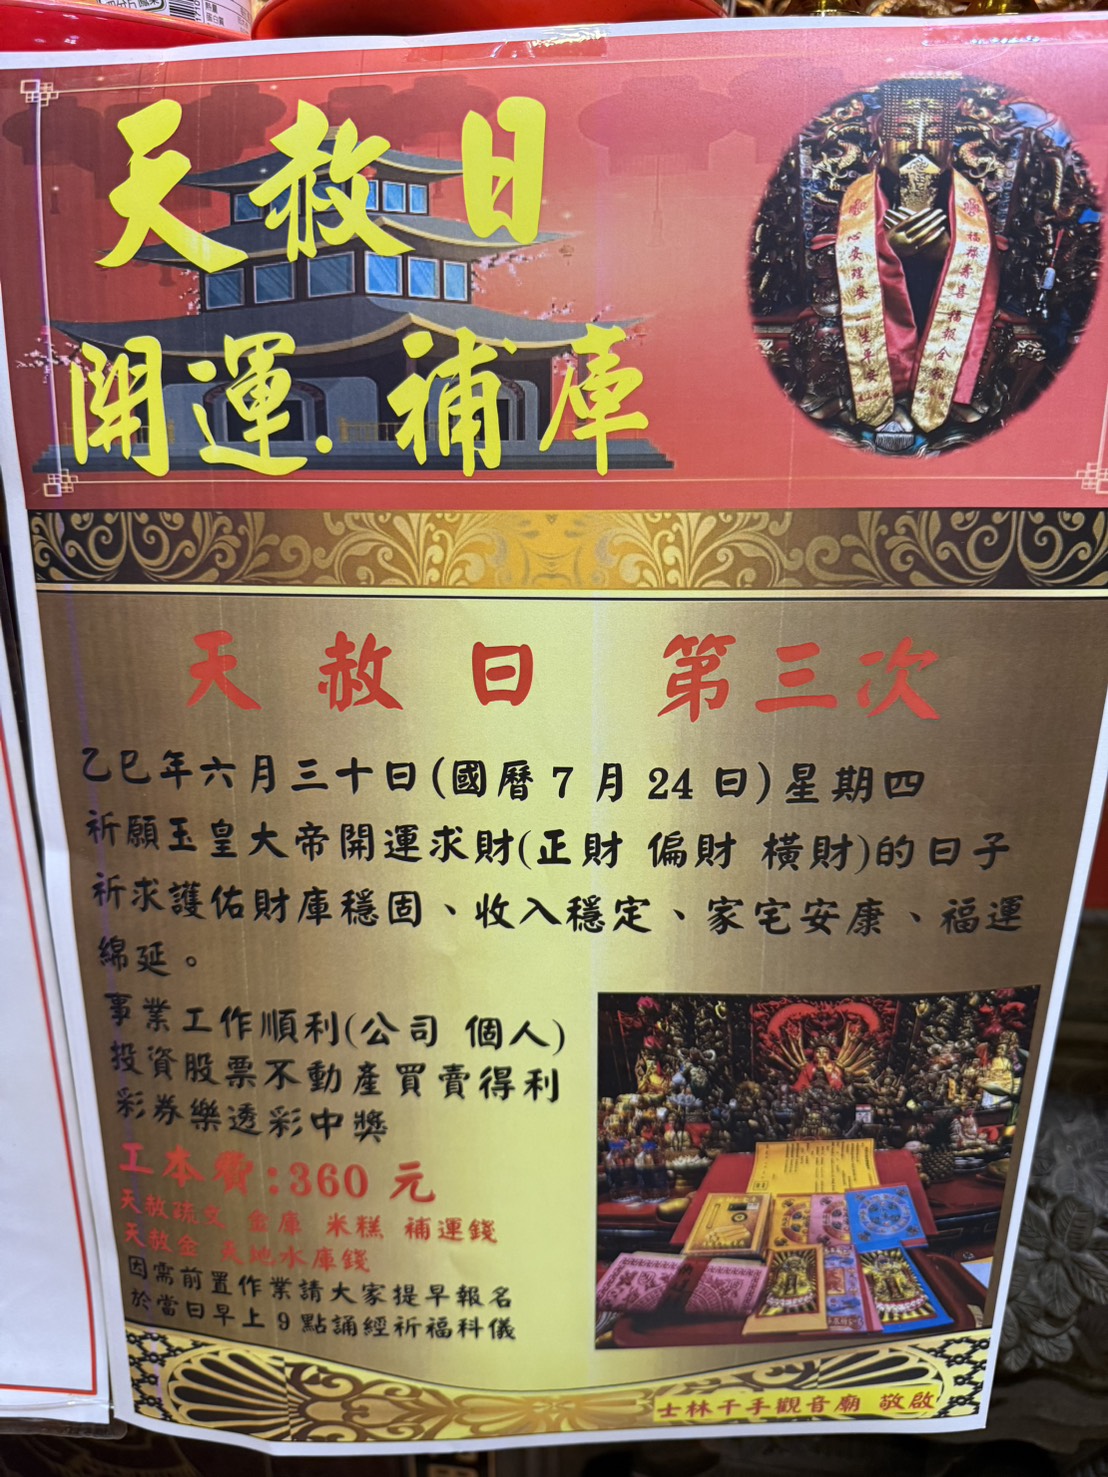 天赦日
開運.補庫
天赦日 第三次
乙巳年六月三十日(國曆7月24日)星期四
祈願玉皇大帝開運求財(正財 偏財 橫財)的日子
祈求護佑財庫穩固、收入穩定、家宅安康、福運
綿延。
事業工作順利(公司 個人)
投資股票不動產買賣得利
彩券樂透彩中獎
工本費:360 元
天赦疏文 金庫 米糕 補運錢
天赦金 天地水庫錢
因需前置作業請大家提早報名
於當日早上9點誦經祈福科儀
士林千手觀音廟 敬啟